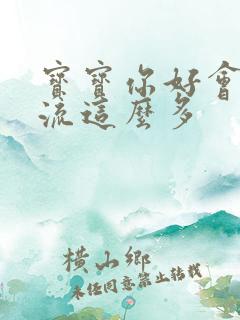 寶寶你好會
流這麼多
橫山鄉
未經同意禁止轉載